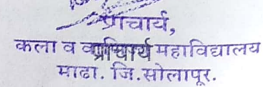 प्राचार्य,
कला व प्राचार्य महाविद्यालय
माढा. जि.सोलापूर.